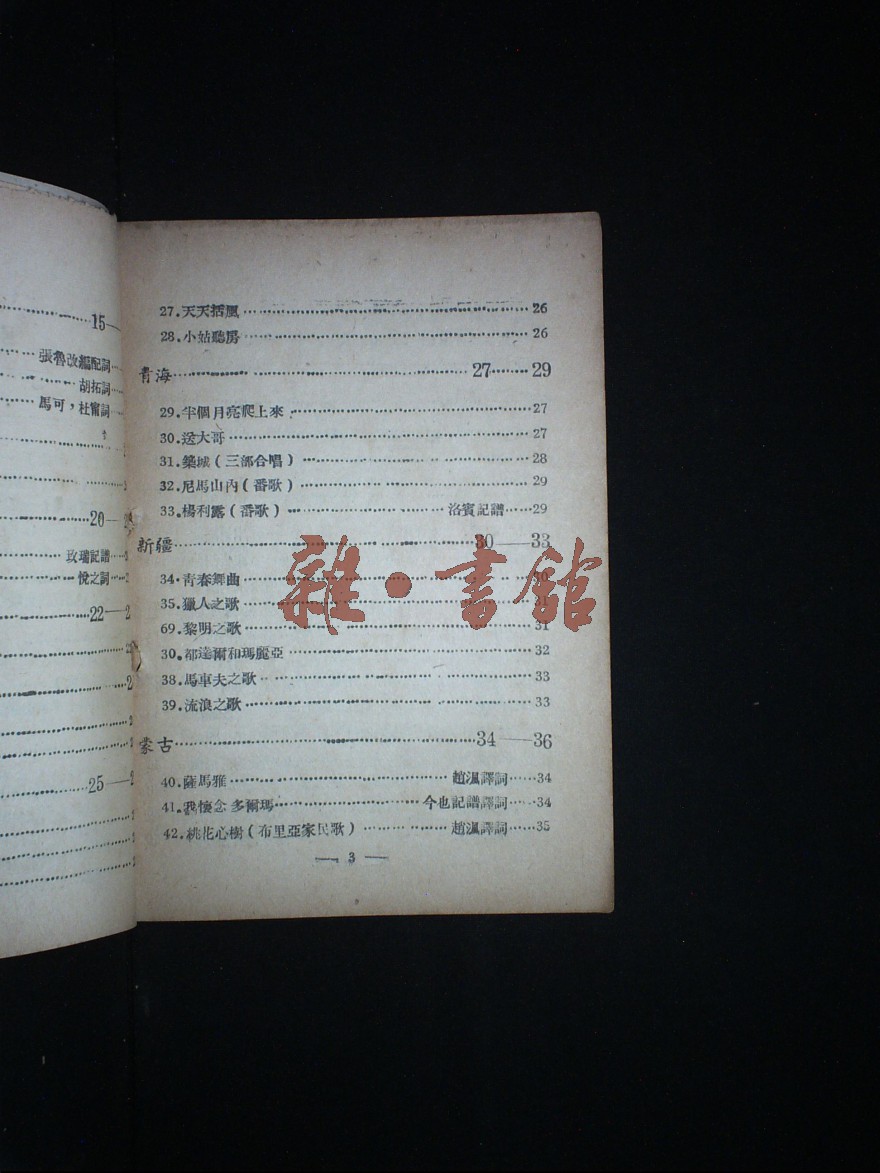 15—
張魯改編配詞
胡拓詞
馬可，杜甯詞
20—2
玫瑞記譜
悅之詞
22—2
25—2
27.天天括風 26
28.小姑聽房 26
青海 27——29
29.半個月亮爬上來 27
30.送大哥 27
31.築城（三部合唱） 28
32.尼馬山內（番歌） 29
33.楊利露（番歌） 洛賓記譜 29
新疆 30——33
34.青春舞曲 30
35.獵人之歌 31
69.黎明之歌 31
30.都達爾和瑪麗亞 32
38.馬車夫之歌 33
39.流浪之歌 33
蒙古 34——36
40.薩馬雅 趙渢譯詞 34
41.我懷念多爾瑪 今也記譜譯詞 34
42.桃花心樹（布里亞家民歌） 趙渢譯詞 35
— 3 —
雜·書館